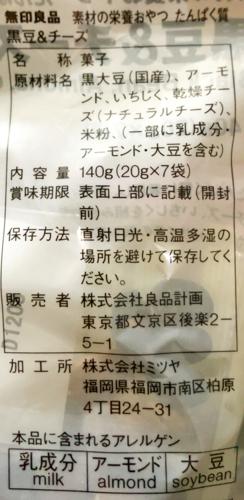 無印良品 素材の栄養おやつ たんぱく質
黒豆&チーズ
名称 菓子
原材料名 黒大豆(国産)、アーモ
ンド、いちじく、乾燥チー
ズ(ナチュラルチーズ)、
米粉、(一部に乳成分・
アーモンド・大豆を含む)
内容量 140g(20g×7袋)
賞味期限 表面上部に記載(開封
前)
保存方法 直射日光・高温多湿の
場所を避けて保存してく
ださい。
販売者 株式会社良品計画
東京都文京区後楽2-
5-1
加工所 株式会社ミツヤ
福岡県福岡市南区柏原
4丁目24-31
本品に含まれるアレルゲン
乳成分 アーモンド 大豆
milk almond soybean